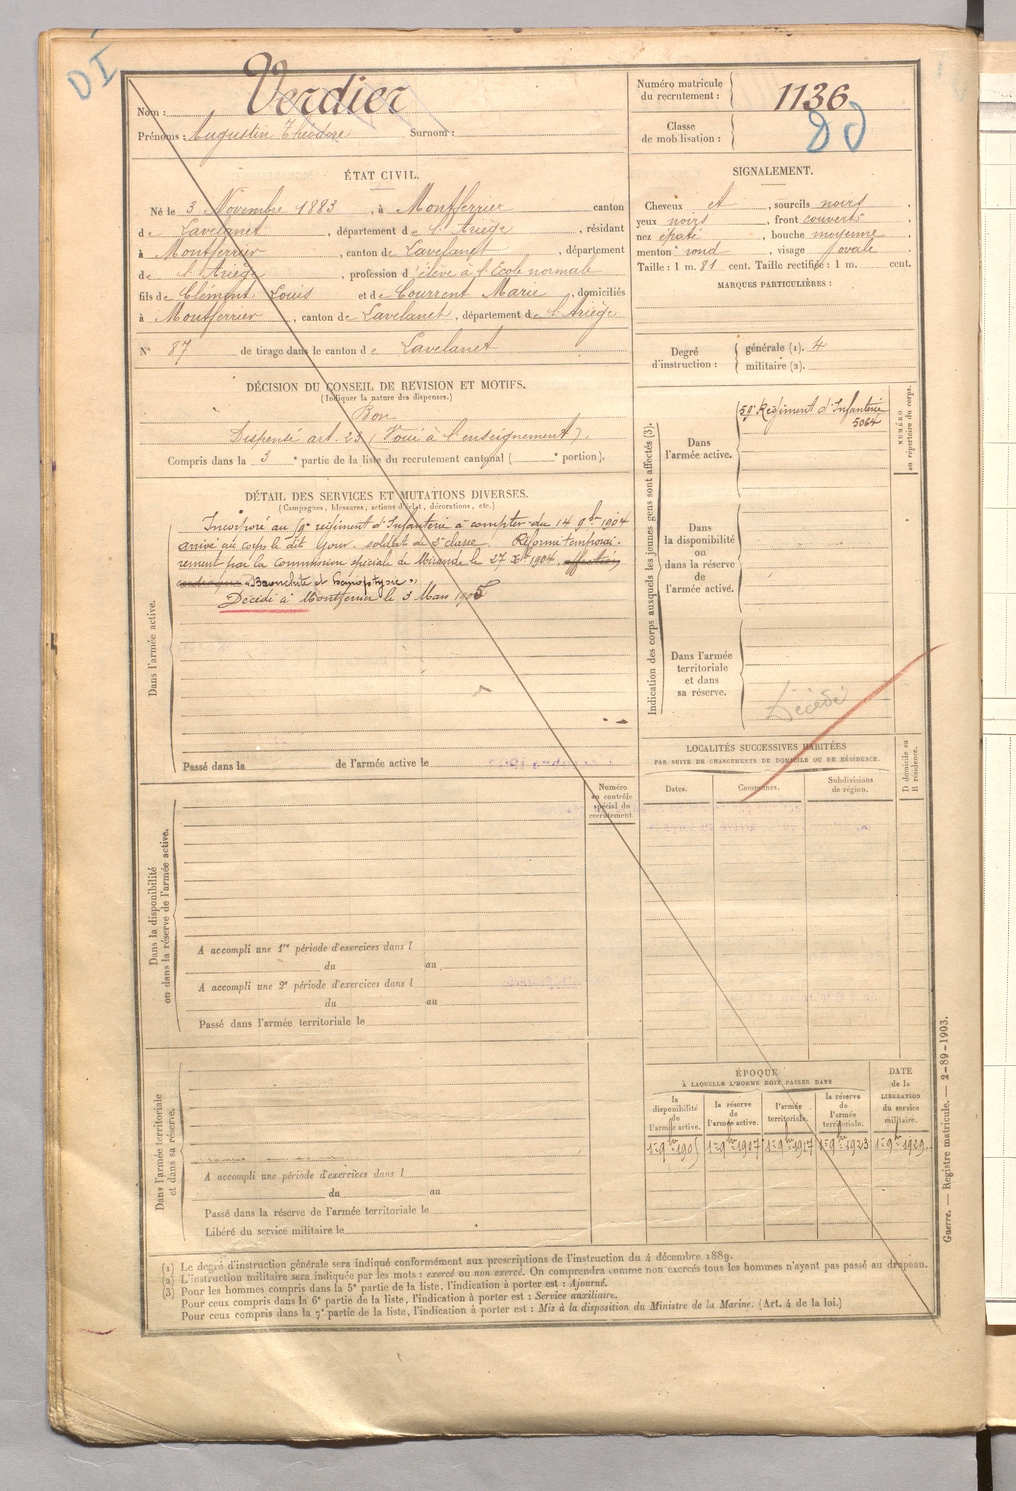 DI
Nom : Verdier
Prénoms : Augustin Théodore Surnom :
Numéro matricule du recrutement : 1136
Classe de mobilisation :
ÉTAT CIVIL.
Né le 3 Novembre 1883, à Montferrier canton
de Lavelanet, département de l'Ariège, résidant
à Montferrier, canton de Lavelanet, département
de l'Ariège, profession d'élève à l'Ecole normale
fils de Clément Louis et de Courrent Marie, domiciliés
à Montferrier, canton de Lavelanet, département de l'Ariège
N° 87 de tirage dans le canton de Lavelanet
SIGNALEMENT.
Cheveux et, sourcils noirs,
yeux noirs, front couvert,
nez épaté, bouche moyenne,
menton rond, visage ovale
Taille : 1 m. 81 cent. Taille rectifiée : 1 m. cent.
MARQUES PARTICULIÈRES :
Degré d'instruction : générale (1). 4
militaire (2).
DÉCISION DU CONSEIL DE REVISION ET MOTIFS.
(Indiquer la nature des dispenses.)
Bon
Dispensé art. 23 (Voué à l'enseignement).
Compris dans la 3e partie de la liste du recrutement cantonal ( e portion).
DÉTAIL DES SERVICES ET MUTATIONS DIVERSES.
(Campagnes, blessures, actions d'éclat, décorations, etc.)
Dans l'armée active.
Incorporé au régiment d'Infanterie à compter du 14 9bre 1904
arrivé au corps le dit jour. soldat de 2e classe. Réformé temporai-
rement par la commission spéciale de Mirande le 27 Xbre 1904. affection
cardiaque "Bronchite et hémoptysie"
Décédé à Montferrier le 3 Mars 1905
Passé dans la de l'armée active le
Indication des corps auxquels les jeunes gens sont affectés (3).
NUMÉRO au répertoire du corps.
Dans l'armée active.
Régiment d'Infanterie
5064
Dans la disponibilité ou dans la réserve de l'armée active.
Dans l'armée territoriale et dans sa réserve.
Décédé
LOCALITÉS SUCCESSIVES HABITÉES
PAR SUITE DE CHANGEMENTS DE DOMICILE OU DE RÉSIDENCE.
Dates. Communes. Subdivisions de région.
D domicile ou R résidence.
Numéro au contrôle spécial du recrutement.
Dans la disponibilité ou dans la réserve de l'armée active.
A accompli une 1re période d'exercices dans l
du au
A accompli une 2e période d'exercices dans l
du au
Passé dans l'armée territoriale le
Dans l'armée territoriale et dans sa réserve.
A accompli une période d'exercices dans l
du au
Passé dans la réserve de l'armée territoriale le
Libéré du service militaire le
ÉPOQUE
À LAQUELLE L'HOMME DOIT PASSER DANS
la disponibilité de l'armée active.
la réserve de l'armée active.
l'armée territoriale.
la réserve de l'armée territoriale.
DATE de la LIBÉRATION du service militaire.
1er 9bre 1905 1er 9bre 1907 1er 9bre 1917 1er 9bre 1923 1er 9bre 1929
(1) Le degré d'instruction générale sera indiqué conformément aux prescriptions de l'instruction du 4 décembre 1889.
(2) L'instruction militaire sera indiquée par les mots : exercé ou non exercé. On comprendra comme non exercés tous les hommes n'ayant pas passé au drapeau.
(3) Pour les hommes compris dans la 5e partie de la liste, l'indication à porter est : Ajourné.
Pour ceux compris dans la 6e partie de la liste, l'indication à porter est : Service auxiliaire.
Pour ceux compris dans la 7e partie de la liste, l'indication à porter est : Mis à la disposition du Ministre de la Marine. (Art. 4 de la loi.)
Guerre. — Registre matricule. — 2-89-1903.